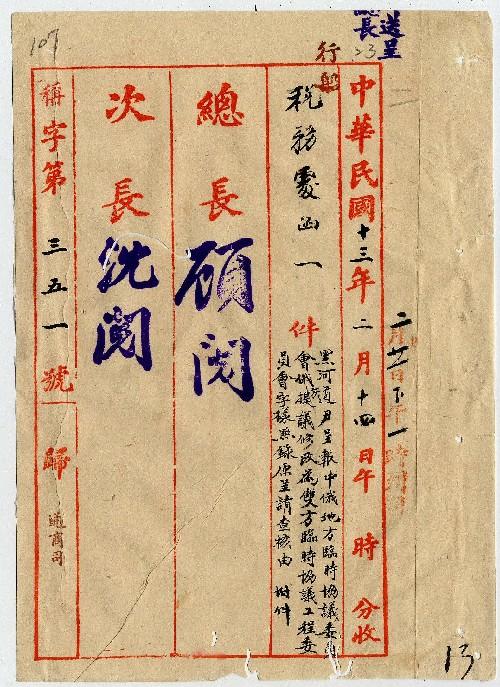 送呈
總長
107
二月廿日下午一時
中華民國十三年二月十四日午 時 分收
行
稅務處函一件
黑河道尹呈報中俄地方臨時協議委員
會俄提議修改為雙方臨時協議工程委
員會字樣照錄原呈請查核由 附件
總長
顧閱
次長
沈閱
稱字第三五一號歸
通商司
13